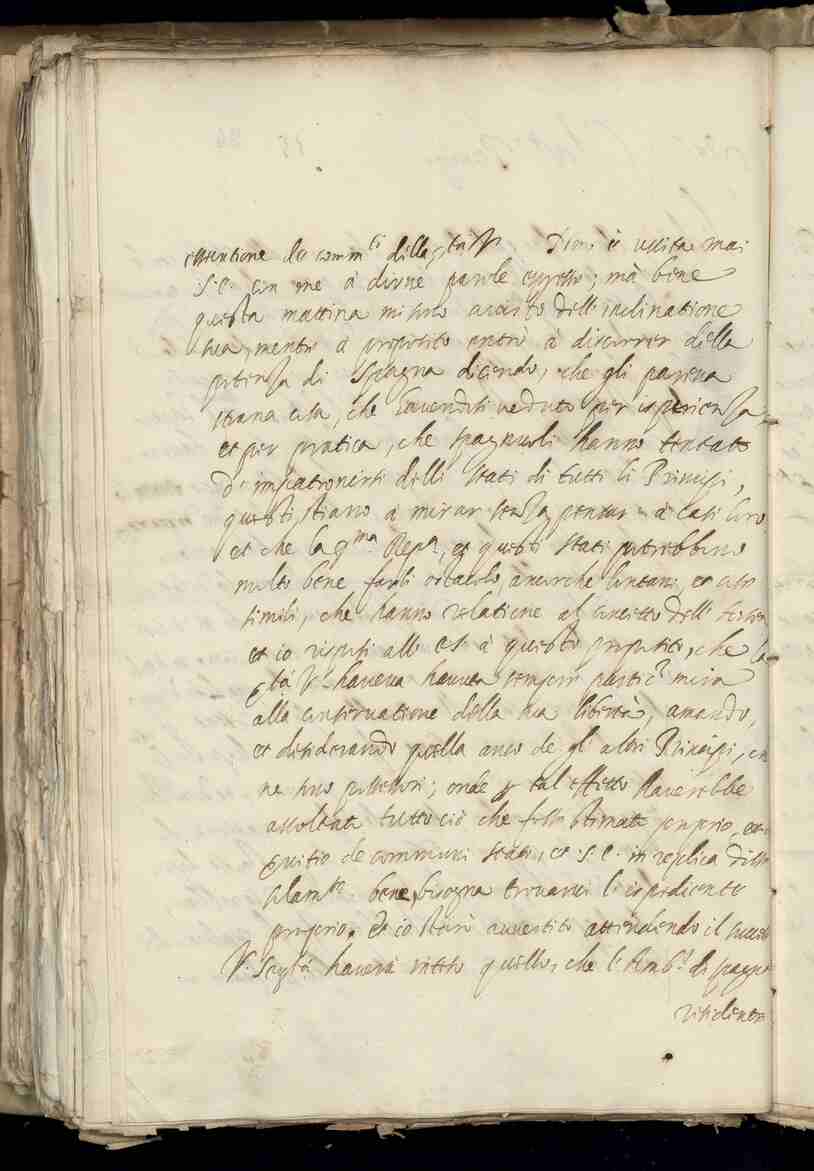 essentione de comm.ti della Non è uscita mai
S. E. con me à dirne parole espresse; mà bene
questa mattina mi fece accorto dell'inclinatione
sua, mentre à proposito entrò à discorrer della
potenza di Spagna dicendo, che gli pareva
strana cosa, che havendosi veduto per esperienza,
et per pratica, che Spagnuoli hanno tentato
d'impatronirsi delli stati di tutti li Principi,
questi, stiano à mirar senza pensar à casi loro
et che la Rep.ca, et questi stati potrebbono
molto bene farli ostacolo, ancorche lontani, et cose
simili, che hanno relatione al concetto dell'
et io risposi all' à questo proposito, che la
V.ra haveva havuta sempre partic.r mira
alla conservatione della sua libertà, amando,
et desiderando quella anco de gli altri Principi, 
ne suoi possessori; onde per tal effetto haverebbe
ascoltato tutto ciò che fosse stimato proprio,
servitio de communi stati, et S. E. in replica disse
solam.te bene, bisogna trovarvi l'espediente
proprio. Et io starò avvertito attendendo il
V. Ser.tà haverà inteso quello, che l'Amb.r di Spagna
residente